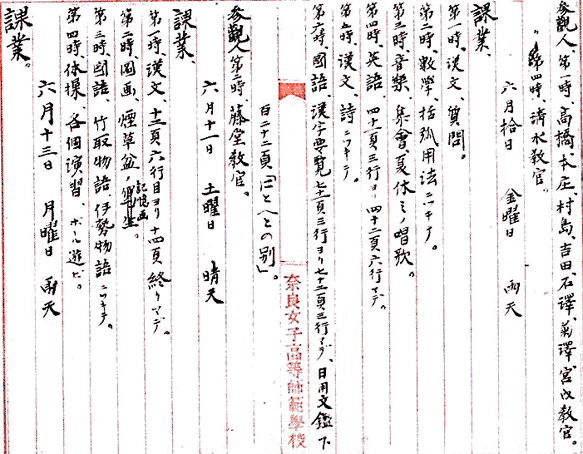 参観人第一時高橋本庄、村島、吉田石澤、菊澤、宮成教官。
〃第四時、清水教官。
六月拾日　金曜日　雨天
課業、
第一時、漢文、質問。
第二時、数學、括弧用法ニツキテ。
第三時、音樂、集會、夏休ミノ唱歌。
第四時、英語、四十一頁三行ヨリ四十二頁六行マデ。
第五時、漢文、詩ニツキテ。
第六時、國語、漢字要覧七十一頁三行ヨリ七十二頁三行マデ、日用文鑑下
奈良女子高等師範學校
百二十二頁「にとへとの別」。
参観人第二時藤堂教官。
六月十一日　土曜日　晴天
課業、
第一時、漢文、十三頁六行目ヨリ十四頁終リマデ。
第二時、圖画、煙草盆、記憶画、寫生。
第三時、國語、竹取物語、伊勢物語ニツキテ。
第四時、体操、各個演習　ボール遊ビ。
六月十三日　月曜日　雨天
課業。